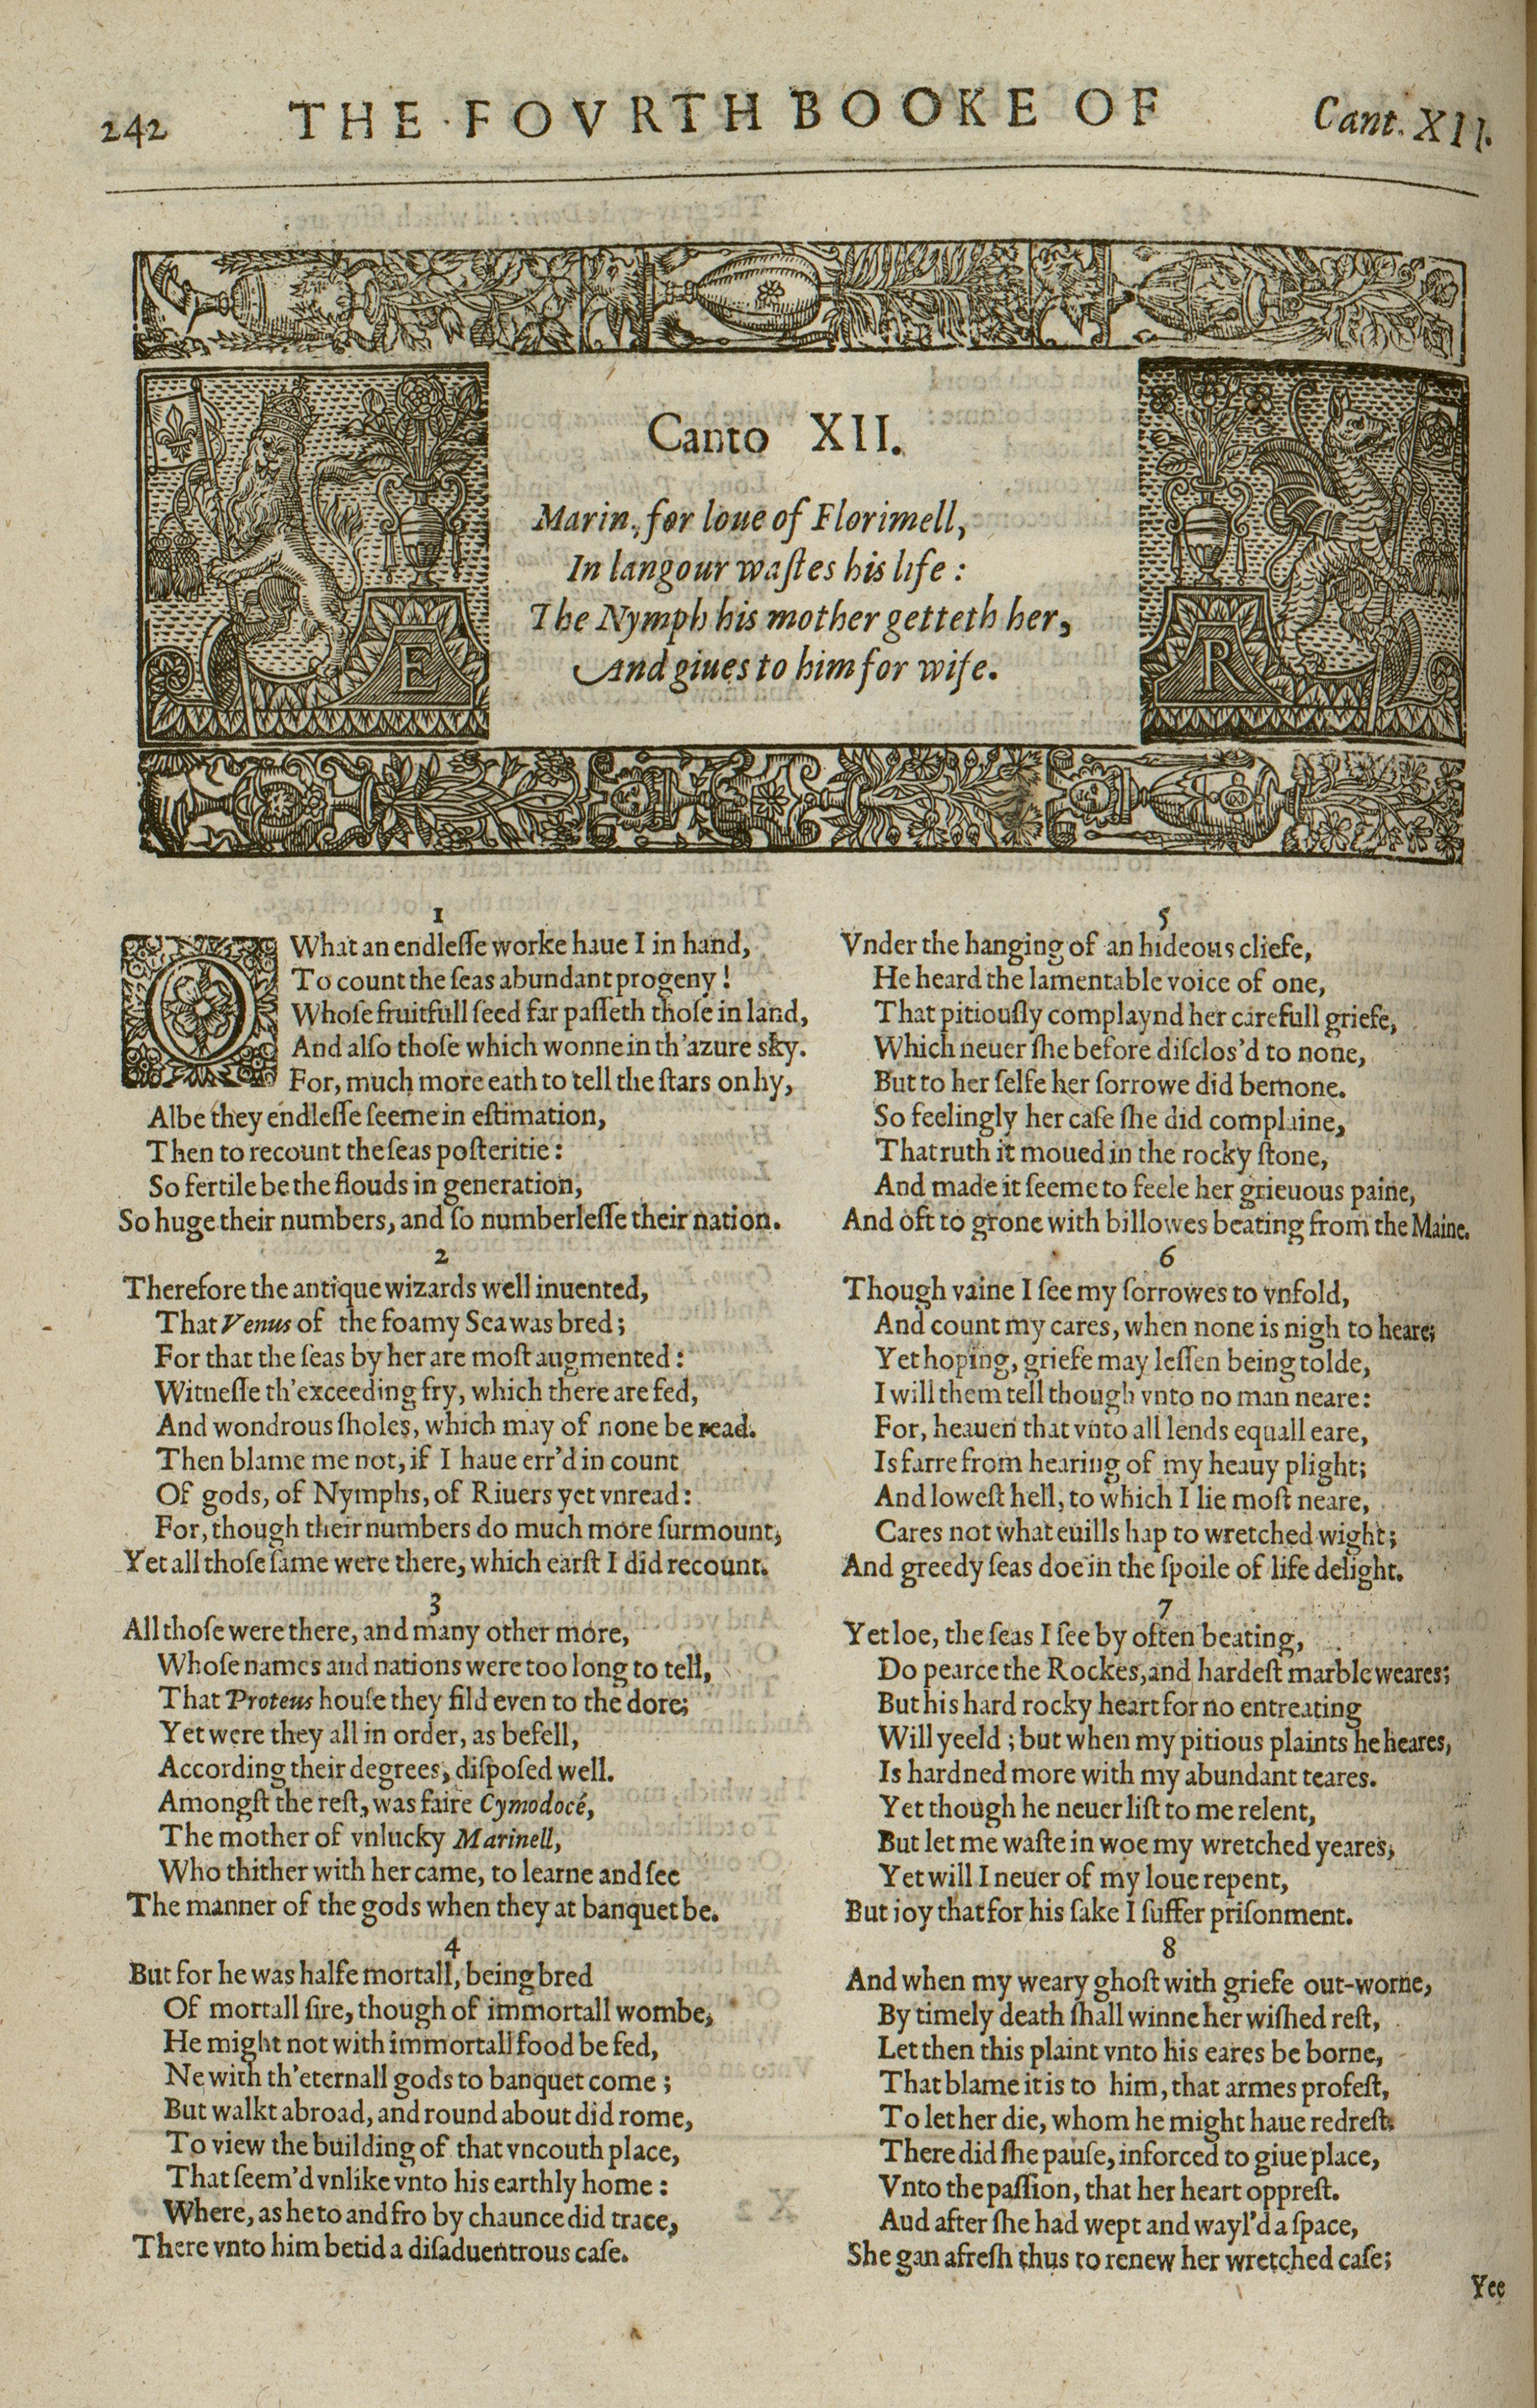 242 THE FOVRTH BOOKE OF Cant. XII.
Canto XII.
Marin, for loue of Florimell,
In langour waſtes his life :
The Nymph his mother getteth her,
And giues to him for wife.
E
R
1
O What an endleſſe worke haue I in hand,
To count the ſeas abundant progeny !
Whoſe fruitfull ſeed far paſſeth thoſe in land,
And alſo thoſe which wonne in th'azure sky.
For, much more eath to tell the ſtars on hy,
Albe they endleſſe ſeeme in eſtimation,
Then to recount the ſeas poſteritie :
So fertile be the flouds in generation,
So huge their numbers, and ſo numberleſſe their nation.
2
Therefore the antique wizards well inuented,
That Venus of the foamy Sea was bred ;
For that the ſeas by her are moſt augmented :
Witneſſe th'exceeding fry, which there are fed,
And wondrous ſholes, which may of none be read.
Then blame me not, if I haue err'd in count
Of gods, of Nymphs, of Riuers yet vnread :
For, though their numbers do much more ſurmount,
Yet all thoſe ſame were there, which earſt I did recount.
3
All thoſe were there, and many other more,
Whoſe names and nations were too long to tell,
That Proteus houſe they fild euen to the dore;
Yet were they all in order, as befell,
According their degrees, diſpoſed well.
Amongſt the reſt, was faire Cymodocé,
The mother of vnlucky Marinell,
Who thither with her came, to learne and ſee
The manner of the gods when they at banquet be.
4
But for he was halfe mortall, being bred
Of mortall ſire, though of immortall wombe,
He might not with immortall food be fed,
Ne with th'eternall gods to banquet come ;
But walkt abroad, and round about did rome,
To view the building of that vncouth place,
That ſeem'd vnlike vnto his earthly home :
Where, as he to and fro by chaunce did trace,
There vnto him betid a diſaduentrous caſe.
5
Vnder the hanging of an hideous cliefe,
He heard the lamentable voice of one,
That pitiouſly complaynd her carefull griefe,
Which neuer ſhe before diſclos'd to none,
But to her ſelfe her ſorrowe did bemone.
So feelingly her caſe ſhe did complaine,
That ruth it moued in the rocky ſtone,
And made it ſeeme to feele her grieuous paine,
And oft to grone with billowes beating from the Maine.
6
Though vaine I ſee my ſorrowes to vnfold,
And count my cares, when none is nigh to heare;
Yet hoping, griefe may leſſen being tolde,
I will them tell though vnto no man neare:
For, heauen that vnto all lends equall eare,
Is farre from hearing of my heauy plight;
And loweſt hell, to which I lie moſt neare,
Cares not what euills hap to wretched wight;
And greedy ſeas doe in the ſpoile of life delight.
7
Yet loe, the ſeas I ſee by often beating,
Do pearce the Rockes, and hardeſt marble weares;
But his hard rocky heart for no entreating
Will yeeld ; but when my pitious plaints he heares,
Is hardned more with my abundant teares.
Yet though he neuer liſt to me relent,
But let me waſte in woe my wretched yeares,
Yet will I neuer of my loue repent,
But ioy that for his ſake I ſuffer priſonment.
8
And when my weary ghoſt with griefe out-worne,
By timely death ſhall winne her wiſhed reſt,
Let then this plaint vnto his eares be borne,
That blame it is to him, that armes profeſt,
To let her die, whom he might haue redreſt.
There did ſhe pauſe, inforced to giue place,
Vnto the paſſion, that her heart oppreſt.
Aud after ſhe had wept and wayl'd a ſpace,
She gan afreſh thus to renew her wretched caſe;
Yee